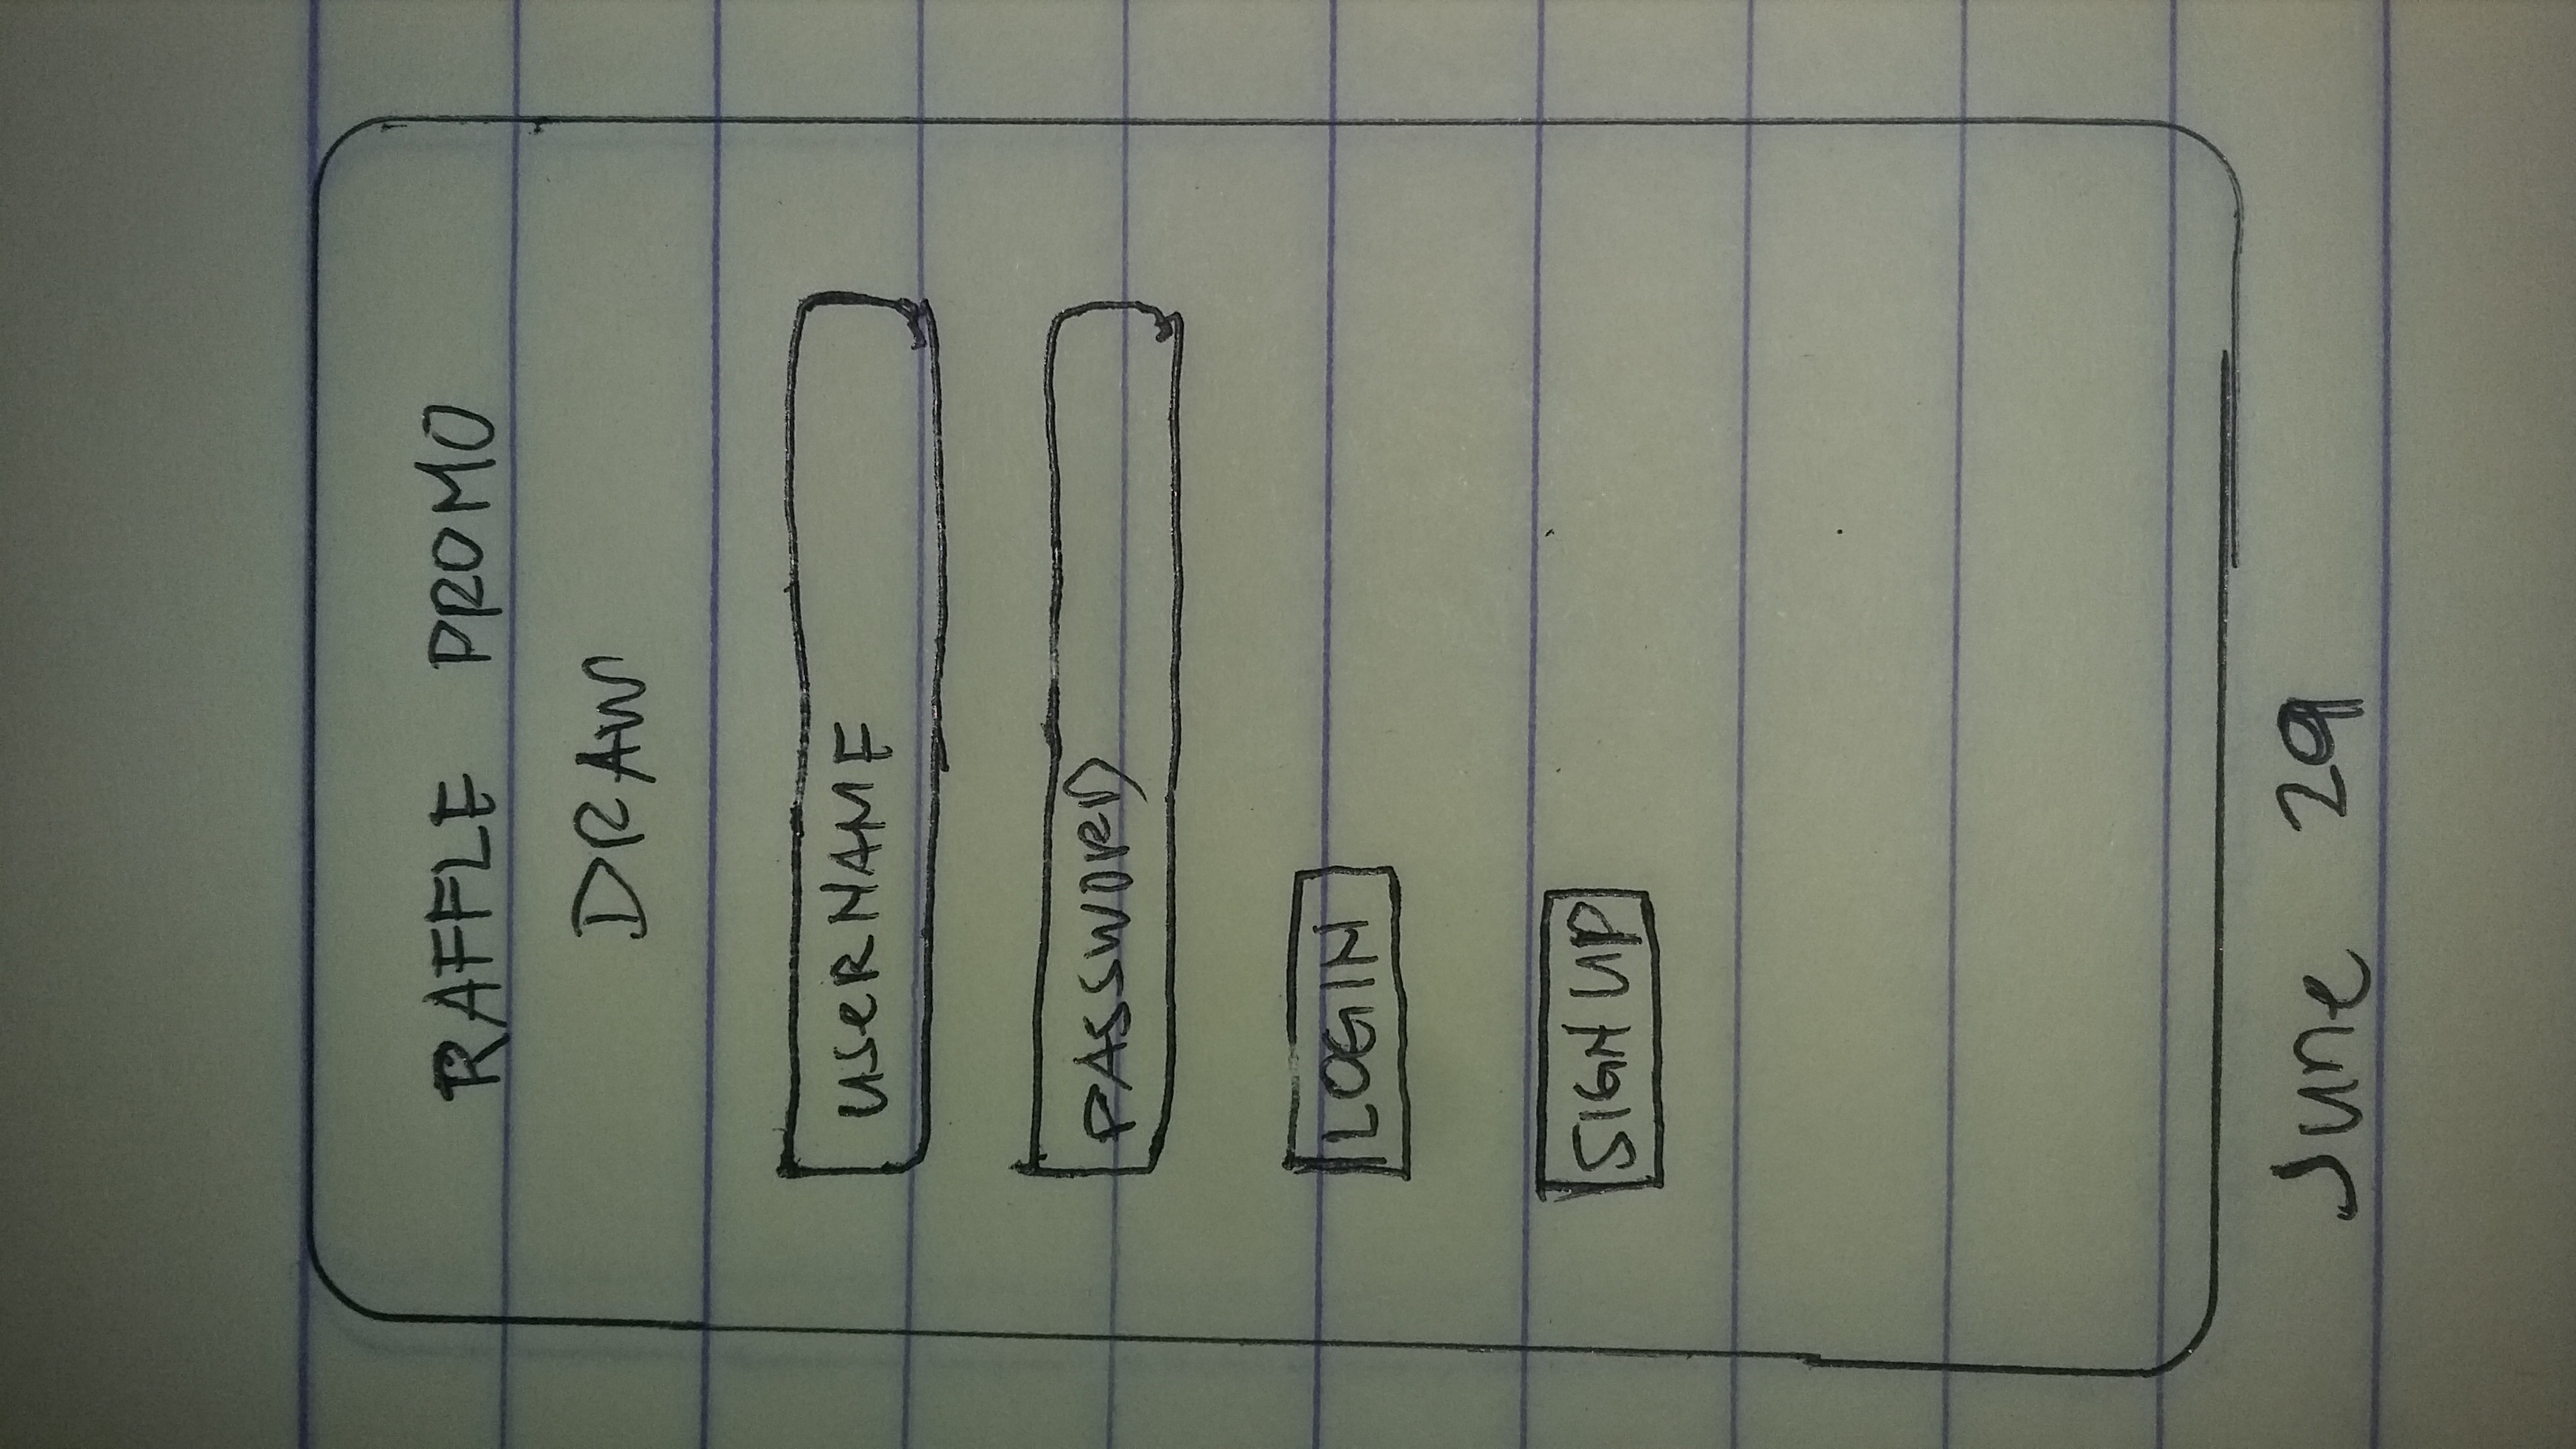 RAFFLE PROMO
DRAW
USeRNAME
PASSWORD
LOGIN
SIGN UP
June 29